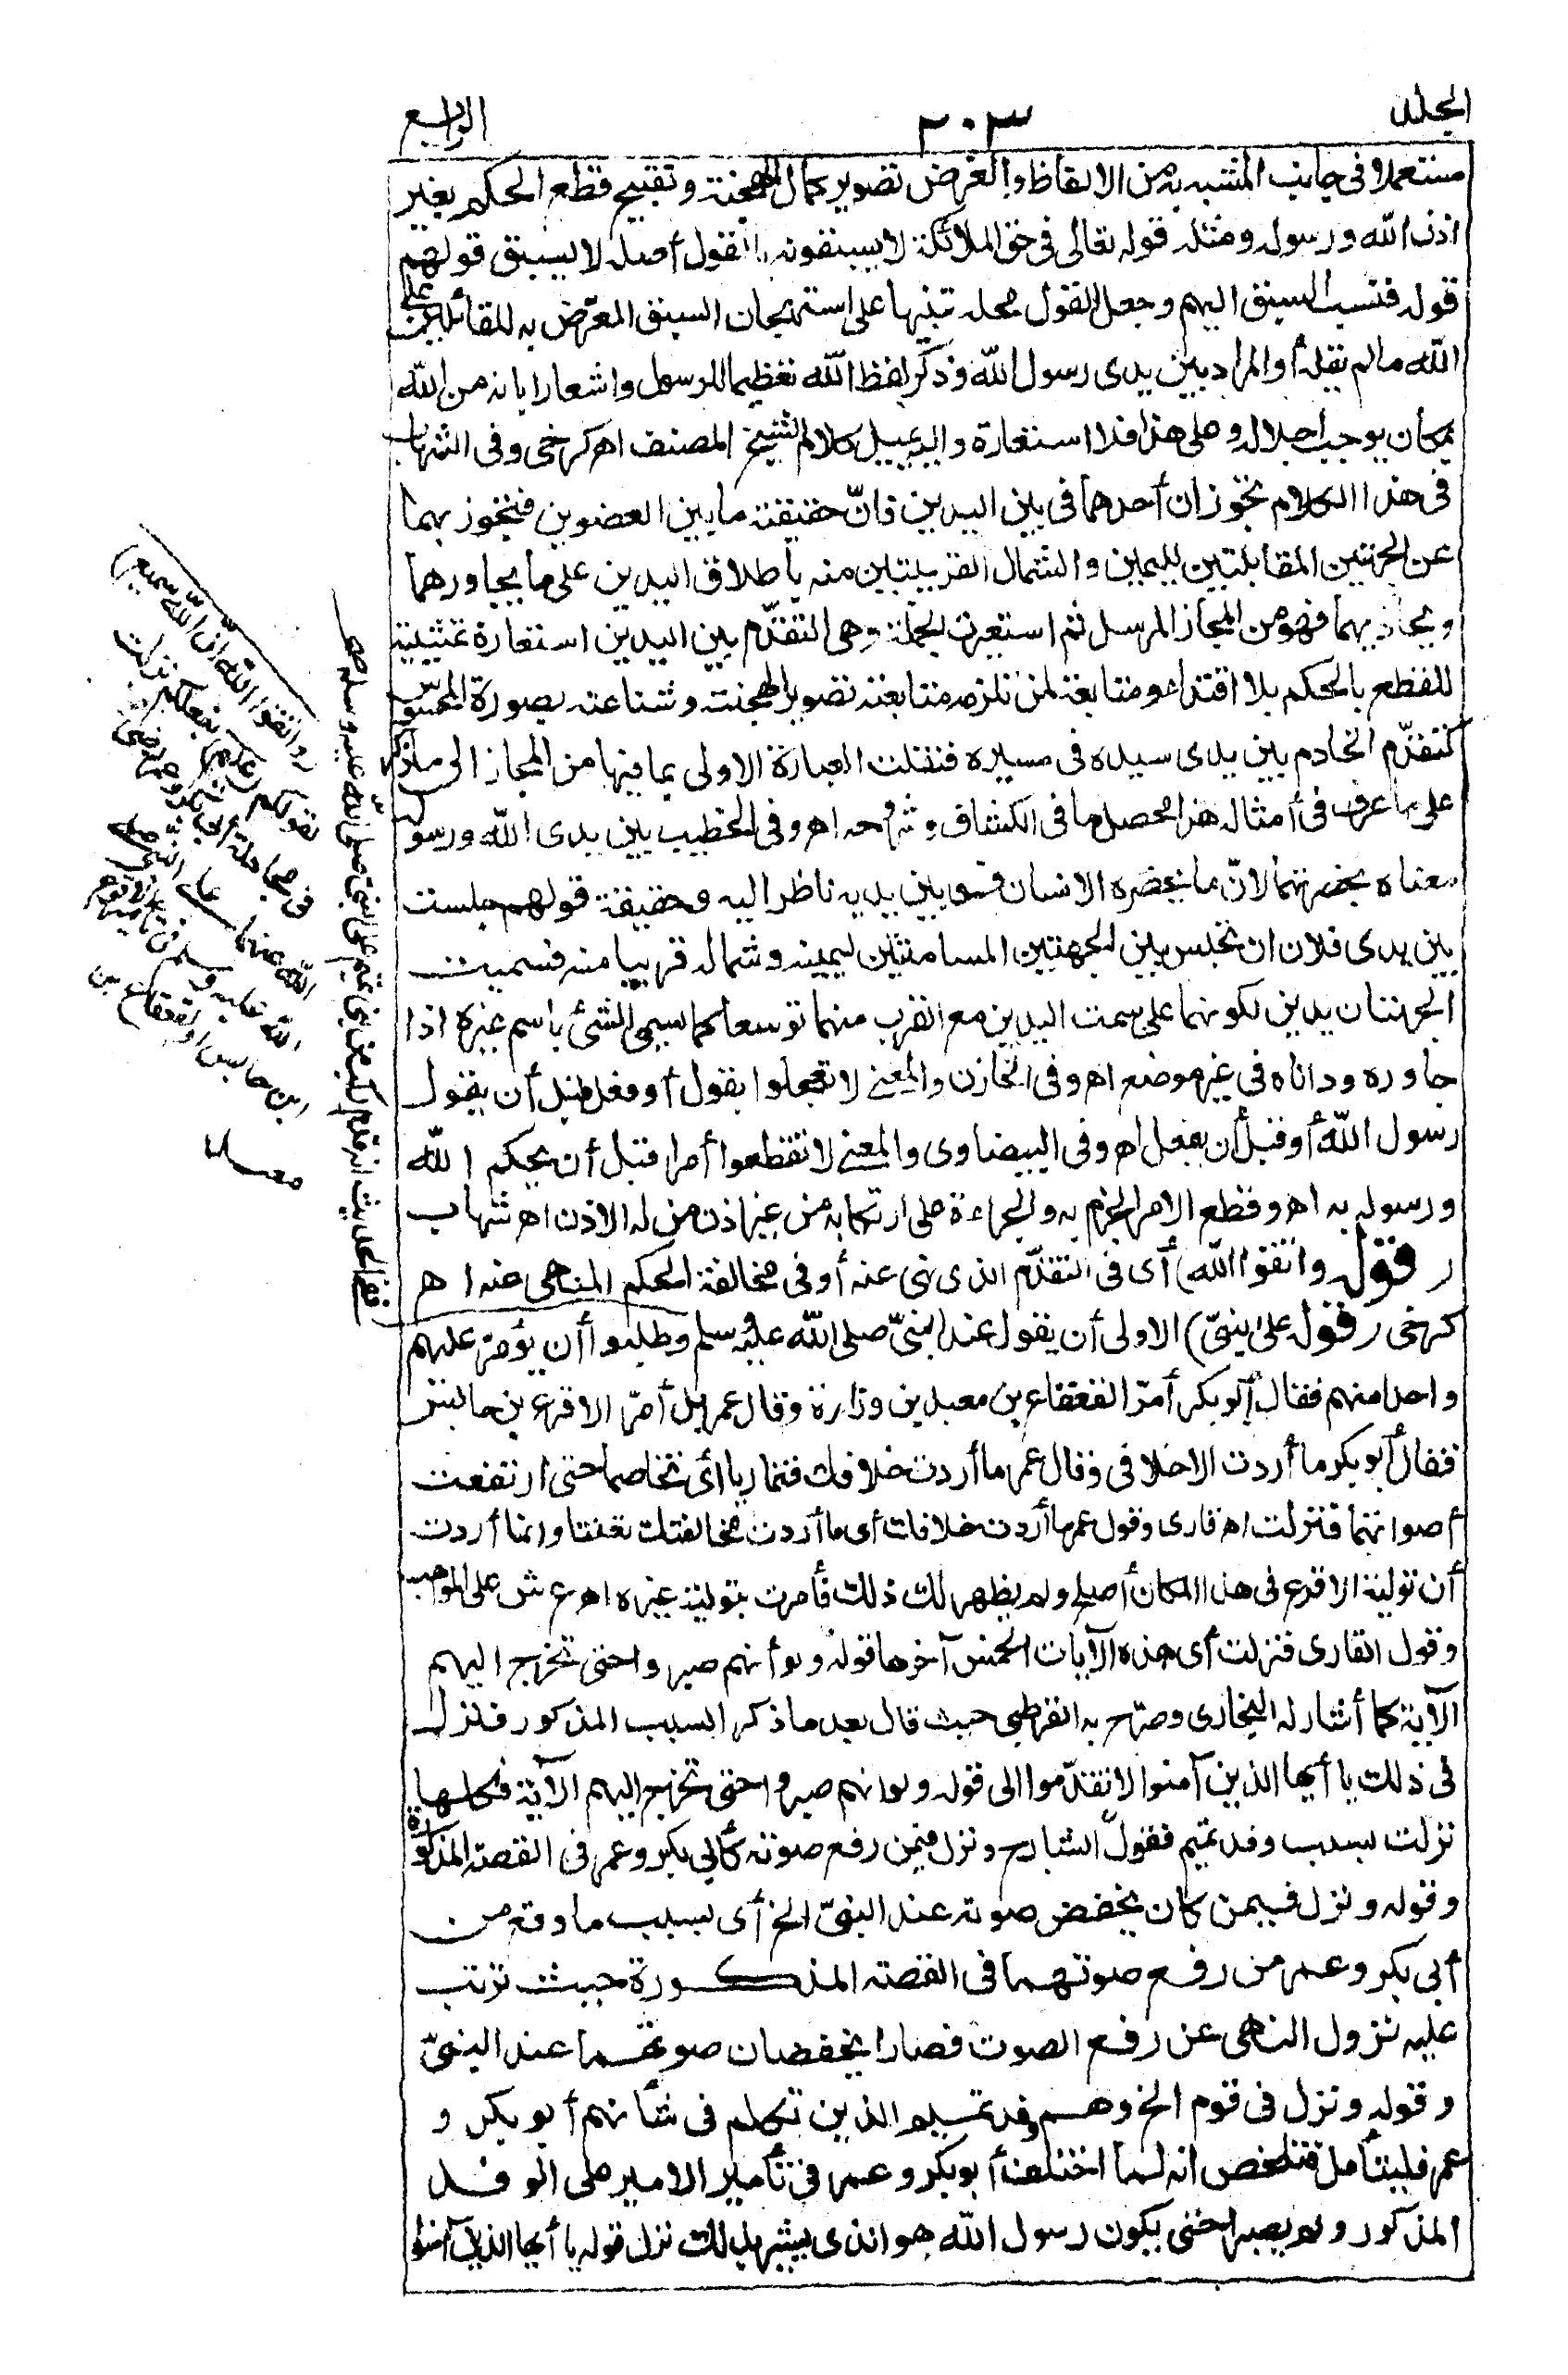 المجلد
٢٠٣
الرابع
مستعملا فى جانب المشبه به من الالفاظ والغرض تصوير كمال الهجنة وتقبيح قطع الحكم بغير
اذن الله ورسوله ومثله قوله تعالى فى حق الملائكة لا يسبقونه بالقول أصله لا يسبق قولهم
قوله فنسب السبق اليهم وجعل القول محله تنبيها على استهجان السبق المعرّض به للقائلين على
الله ما لم يقله أو المراد بين يدى رسول الله وذكر لفظ الله تعظيما للرسول واشعارا بانه من الله
بمكان يوجب اجلاله وعلى هذا فلا استعارة واليه يميل كلام الشيخ المصنف اه كرخى وفى الشهاب
فى هذا الكلام تجوزان أحدهما فى بين اليدين فانّ حقيقته ما بين العضوين فتجوز بهما
عن الجهتين المقابلتين لليمين والشمال القريبتين منه باطلاق اليدين على ما يجاورهما
ويحاذيهما فهو من المجاز المرسل ثم استعيرت الجملة وهى التقدّم بين اليدين استعارة تمثيلية
للقطع بالحكم بلا اقتداء ومتابعة لمن تلزم متابعته تصويرا لهجنته وشناعته بصورة المحسوس
كتقدّم الخادم بين يدى سيده فى مسيره فنقلت العبارة الاولى بما فيها من المجاز الى ما ذكر
على ما عرف فى أمثاله هذا محصل ما فى الكشاف وشروحه اه وفى الخطيب بين يدى الله ورسوله
معناه بحضرتهما لانّ ما يحضره الانسان فهو بين يديه ناظر اليه وحقيقة قولهم جلست
بين يدى فلان ان تجلس بين الجهتين المسامتتين ليمينه وشماله قريبا منه فسميت
الجهتان يدين لكونهما على سمت اليدين مع القرب منهما توسعا كما يسمى الشئ باسم غيره اذا
جاوره وداناه فى غير موضع اه وفى الخازن والمعنى لا تعجلوا بقول أو فعل قبل أن يقول
رسول الله أو قبل أن يفعل اه وفى البيضاوى والمعنى لا تقطعوا أمرا قبل أن يحكم الله
ورسوله به اه وقطع الامر الجزم به والجراءة على ارتكابه من غير اذن من له الاذن اه شهاب
(قوله واتقوا الله) أى فى التقدّم الذى نهى عنه أو فى مخالفة الحكم المنهى عنه اه
كرخى (قوله على النبىّ) الاولى أن يقول عند النبىّ صلى الله عليه وسلم وطلبوا أن يؤمّر عليهم
واحدا منهم فقال أبو بكر أمّر القعقاع بن معبد بن وزارة وقال عمر بل أمّر الاقرع بن حابس
فقال أبو بكر ما أردت الا خلافى وقال عمر ما أردت خلافك فتماريا أى تخاصما حتى ارتفعت
أصواتهما فنزلت اه قارى وقول عمر ما أردت خلافك أى ما أردت مخالفتك تعنتا وانما أردت
أن تولية الاقرع فى هذا المكان أصلح ولم يظهر لك ذلك فأمرت بتولية غيره اه ع ش على المواهب
وقول القارى فنزلت أى هذه الآيات الخمس آخرها قوله ولو أنهم صبروا حتى تخرج اليهم
الآية كما أشار له البخارى وصرّح به القرطبى حيث قال بعد ما ذكر السبب المذكور فنزل
فى ذلك يا أيها الذين آمنوا لا تقدّموا الى قوله ولو انهم صبروا حتى تخرج اليهم الآية فكلها
نزلت بسبب وفد تميم فقول الشارح ونزل فيمن رفع صوته كأبى بكر وعمر فى القصة المذكورة
وقوله ونزل فيمن كان يخفض صوته عند النبىّ الخ أى بسبب ما وقع من
أبى بكر وعمر من رفع صوتهما فى القصة المذكورة حيث ترتب
عليه نزول النهى عن رفع الصوت فصارا يخفضان صوتهما عند النبىّ
وقوله ونزل فى قوم الخ وهم وفد تميم الذين تكلم فى شأنهم أبو بكر و
عمر فليتأمل فتلخص أنه لما اختلف أبو بكر وعمر فى تأمير الامير على الوفد
المذكور ولم يصبرا حتى يكون رسول الله هو الذى يشير بذلك نزل قوله يا أيها الذين آمنوا
(واتقوا الله ان الله سميع)
لقولكم (عليم) بفعلكم نزلت
فى مجادلة أبى بكر وعمر رضى
الله عنهما على النبى صلى
الله عليه وسلم فى تأمير الاقرع
ابن حابس او القعقاع بن
معبد